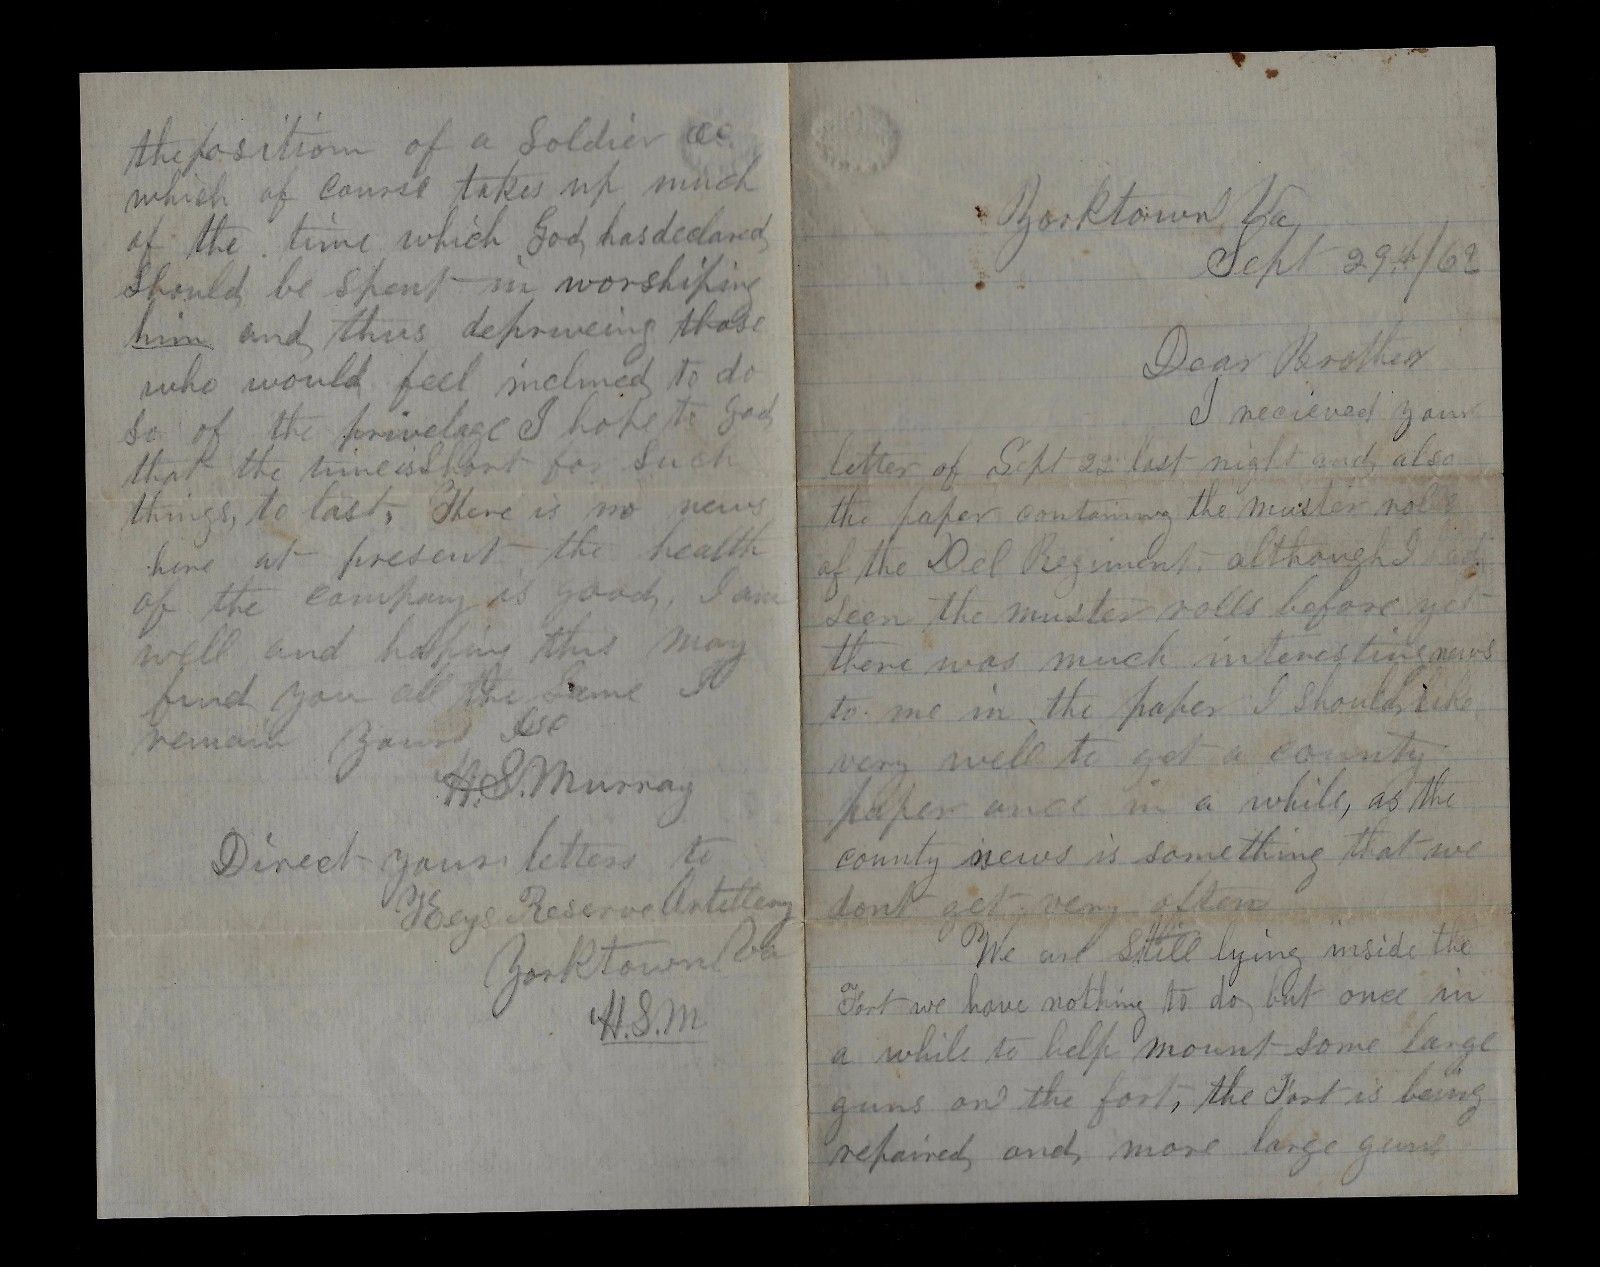 Yorktown Va
Sept 29th/62
Dear Brother
I recieved your
letter of Sept 22 last night and also
the paper containing the muster rolls
of the Del Regiment. although I had
seen the muster rolls before yet
there was much interesting news
to me in the paper I should like
very well to get a county
paper once in a while, as the
county news is something that we
dont get very often
We are still lying inside the
Fort we have nothing to do but once in
a while to help mount some large
guns on the fort, the Fort is being
repaired and more large guns
the position of a Soldier &c.
which of course takes up much
of the time which God has declared
Should be spent in worshiping
him and thus depriveing those
who would feel inclined to do
so of the privelage I hope to God
that the time is Short for Such
things, to last, There is no news
here at present the health
of the company is good, I am
well and hopeing this may
find you all the Same I
remain yours &c
H.S. Murray
Direct your letters to
Keys Reserve Artillery
Yorktown Va
H.S.M